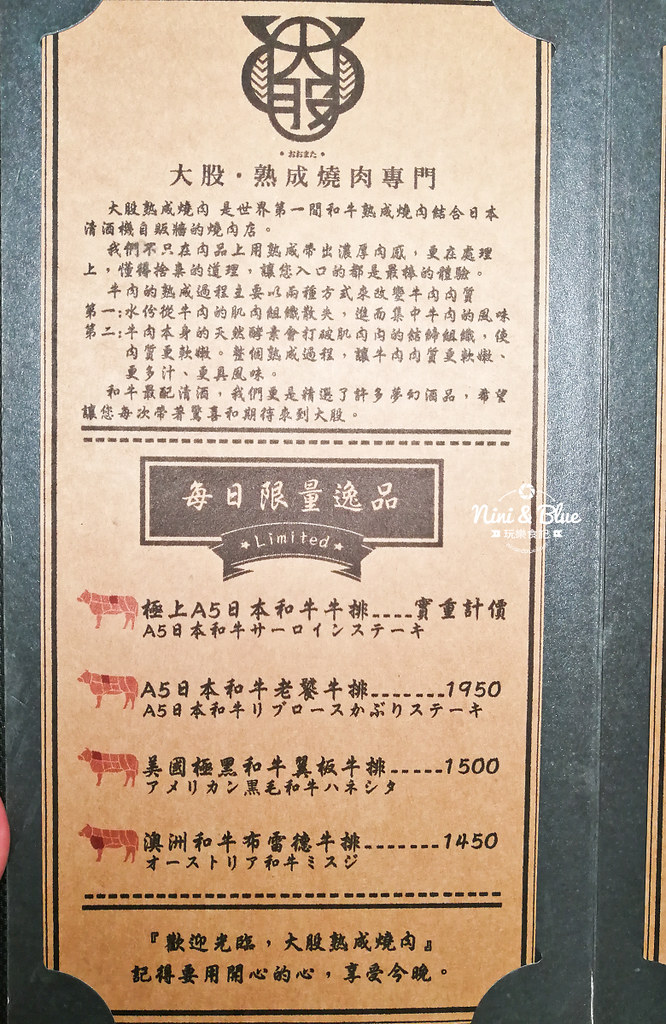 大股
おおまた
大股・熟成燒肉專門
大股熟成燒肉 是世界第一間和牛熟成燒肉結合日本
清酒機自販牆的燒肉店。
我們不只在肉品上用熟成帶出濃厚肉感，更在處理
上，懂得捨棄的道理，讓您入口的都是最棒的體驗。
牛肉的熟成過程主要以兩種方式來改變牛肉肉質
第一:水份從牛肉的肌肉組織散失，進而集中牛肉的風味
第二:牛肉本身的天然酵素會打破肌肉肉的結締組織，使
肉質更軟嫩。整個熟成過程，讓牛肉肉質更軟嫩、
更多汁、更具風味。
和牛最配清酒，我們更是精選了許多夢幻酒品，希望
讓您每次帶著驚喜和期待來到大股。
每日限量逸品
Limited
極上A5日本和牛牛排....實重計價
A5日本和牛サーロインステーキ
A5日本和牛老饕牛排.......1950
A5日本和牛リブロースかぶりステーキ
美國極黑和牛翼板牛排.....1500
アメリカン黒毛和牛ハネシタ
澳洲和牛布雷德牛排.......1450
オーストリア和牛ミスジ
『歡迎光臨，大股熟成燒肉』
記得要用開心的心，享受今晚。
Nini & Blue
玩樂食記